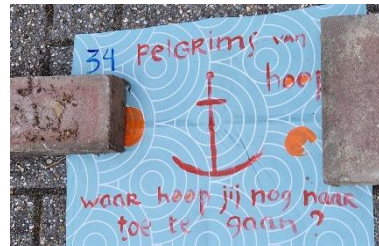 34 PELGRIMS van
hoop
waar hoop jij nog naar
toe te gaan?